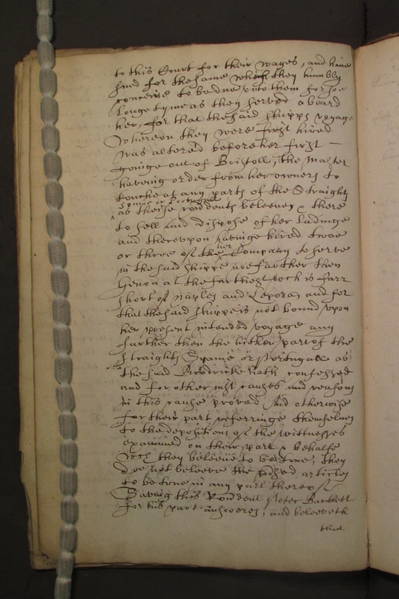 to this Court for their wages, and have
sued for the same which they humbly
conceive to be due unto them for soe
longe tyme as they served aboard
her, for that the said shipps voyage
whereon they were first hired
was altered before her first
goeinge out of Bristoll, the Master
haveing order from her owners to
touche at any parts of the Straights
as theise rondents beleeve, there
to sell and dispose of her ladinge
and thereupon haveinge hired twoe
or three of the Company to serve
in the said shippe noe farther then
Genoa at the farthest which is farr
short of Naples and and for
that the said shipp is not bound upon
her present intended voyage any
further then the hither part of the
Straights, Spaine or Portugall as
the said hath confessed
and for other just causes and reasons
in this cause proved And otherwise
for their part referringe themselves
to the depositions of the witnesses
examined on their part & behalfe
wch they beleeve to be true, they
doe not beleeve the said articles
to be true in any part thereof
Saveing this Rondent Peter Barkett
for his part answeres, and beleeveth
that